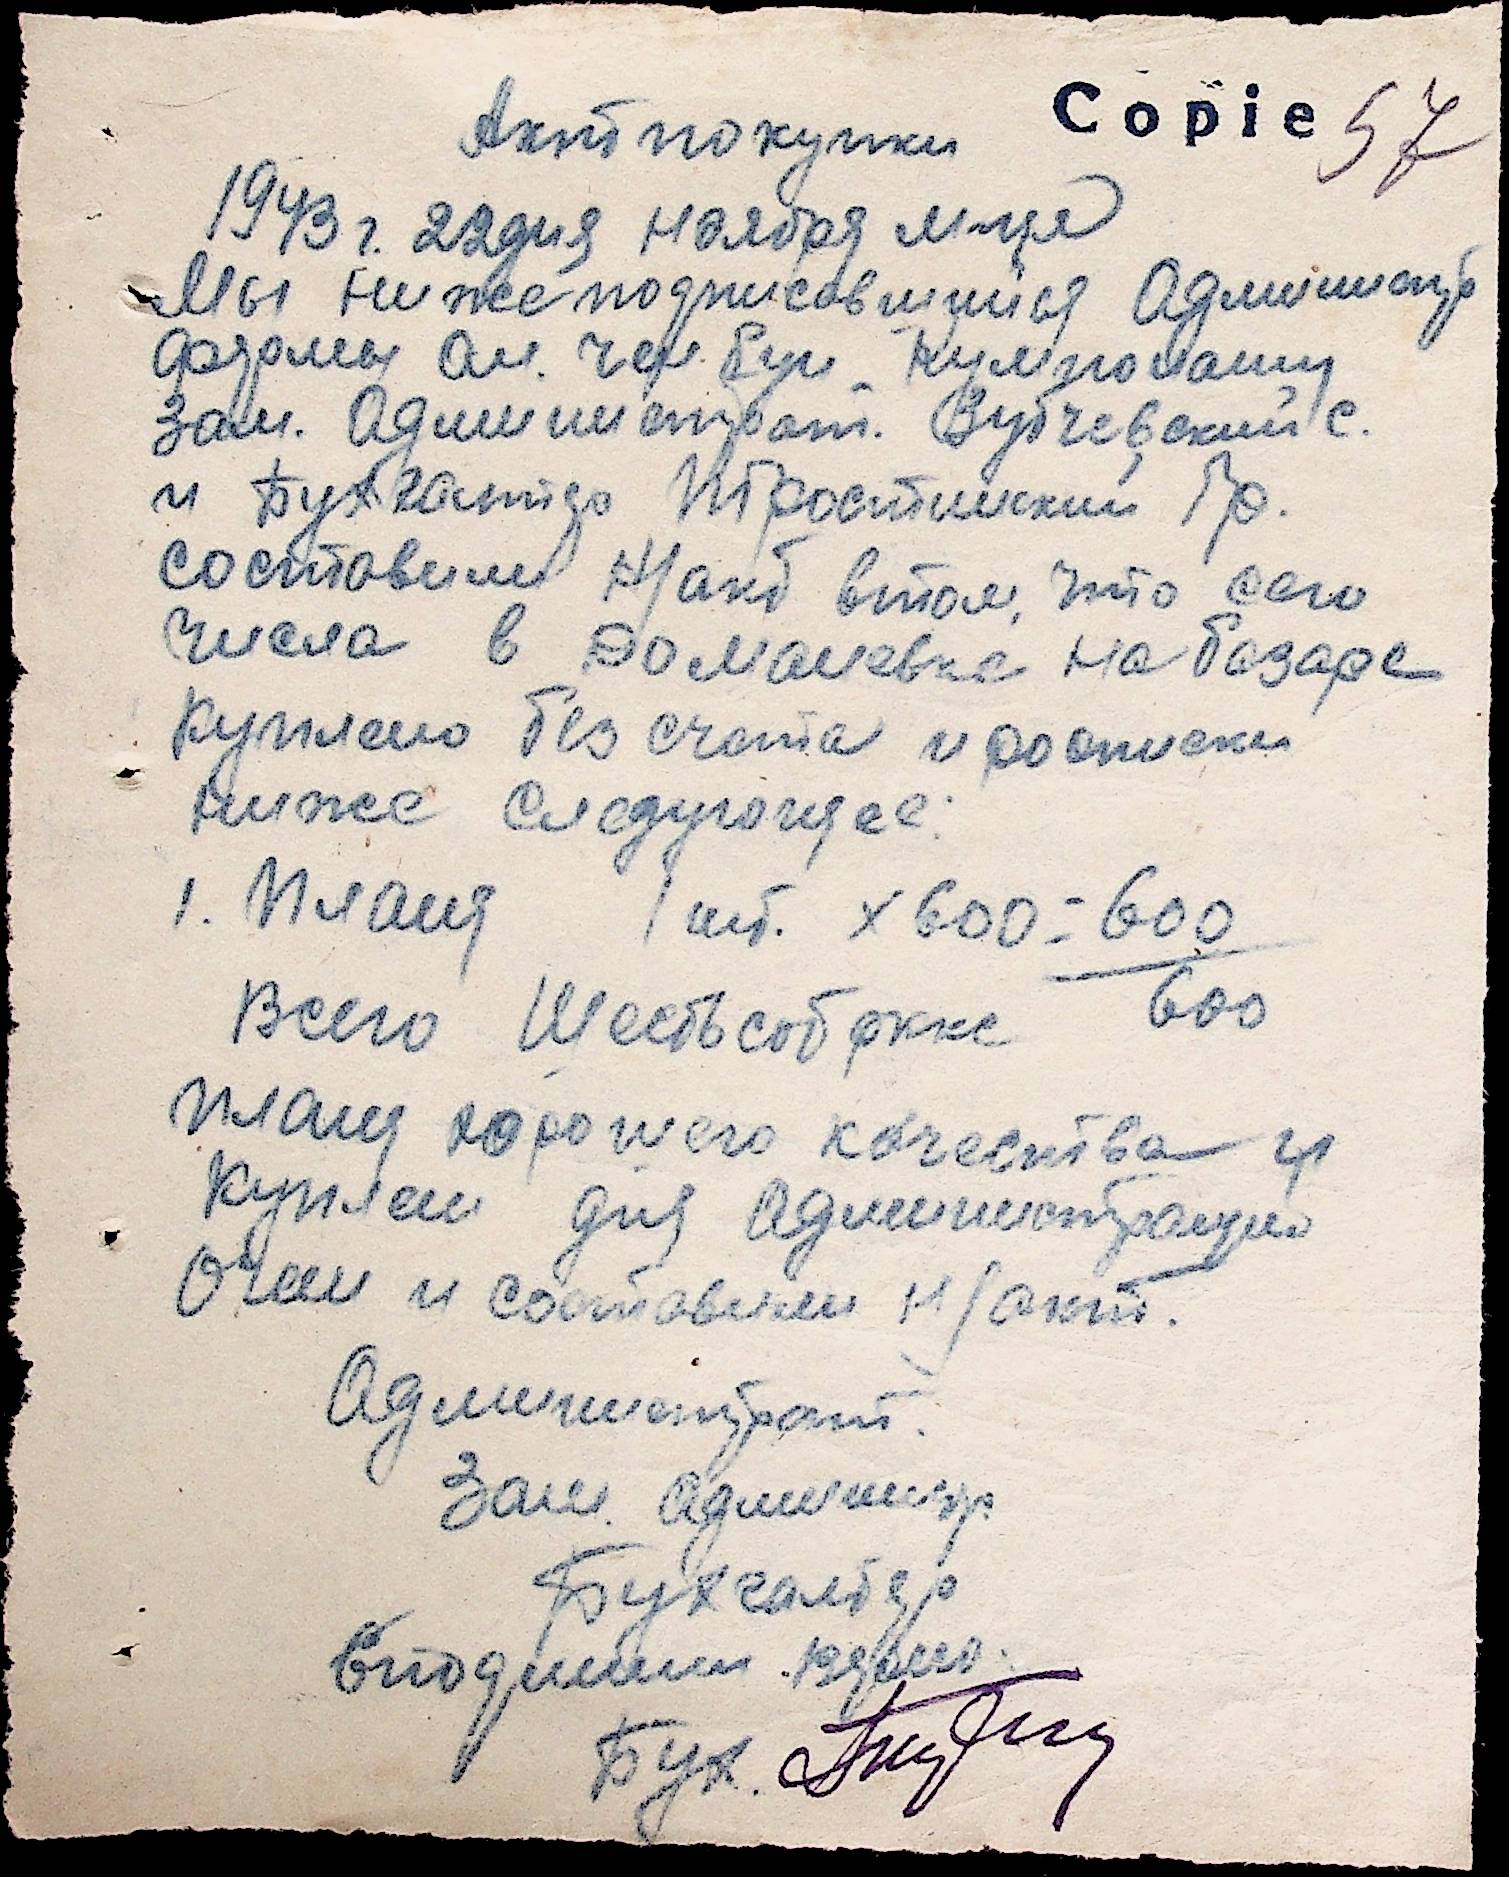 Copie 57
Акт покупки
1943 г. 22 дня ноября м-ця
Мы нижеподписавшийся Администр
фермы Ан.
Зам. Администрат. Вубчевский С.
и Бухгалтер Тростинский Гр.
составили н/акт в том, что сего
числа в Доманевке на базаре
куплено без счета и росписки
ниже следующее:
1. Плащ 1 шт. х 600 = 600
600
Всего Шестьсот рккс
Плащ хорошего качества и
куплен для Администрации
О чем и составили н/акт.
Администрат.
Зам. Администр.
Бухгалтер
С подлинным верно.
Бух.